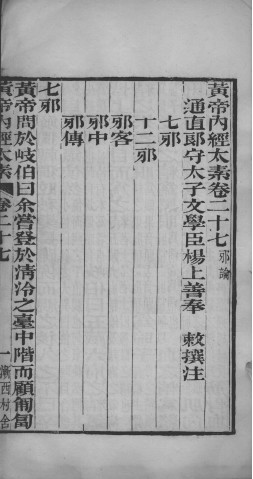 黃帝內經太素卷二十七 邪論
通直郞守太子文學臣楊上善奉 敕撰注
七邪
十二邪
邪客
邪中
邪傳
七邪
黃帝問於岐伯曰余嘗登於清泠之臺中階而顧匍匐
黃帝內經太素 卷二十七 一 漸西村舍